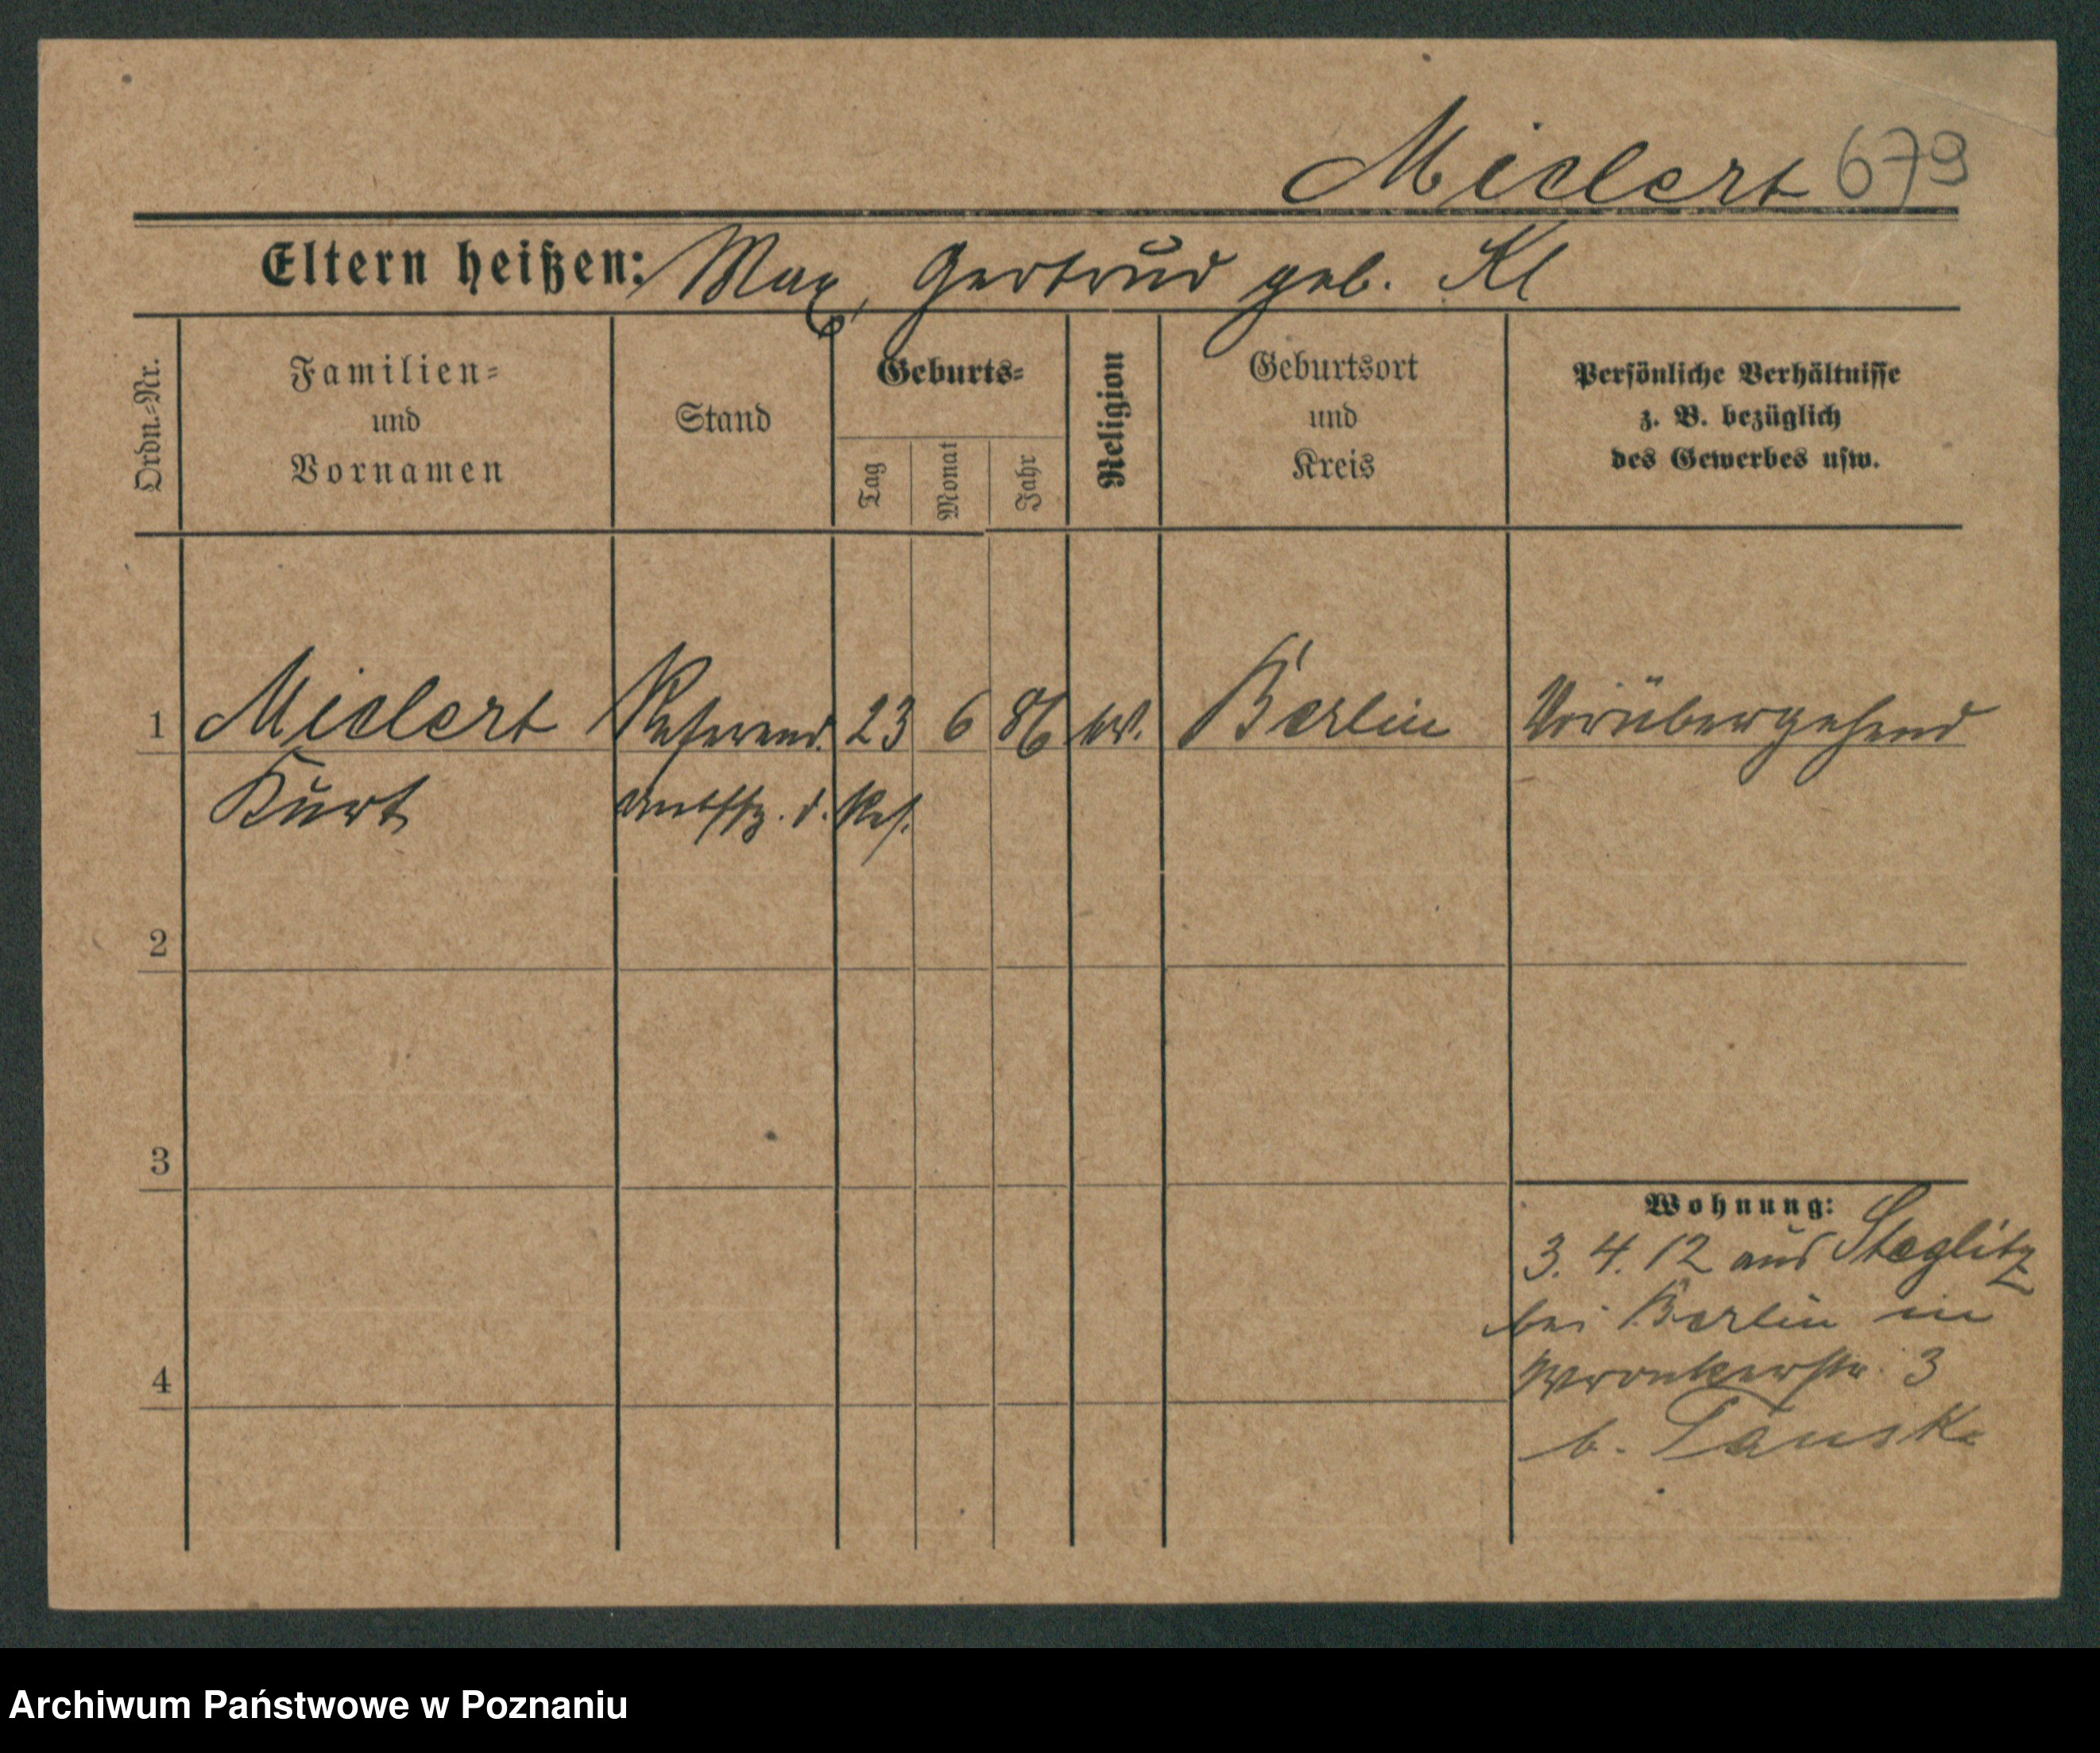 Mielert 679
Eltern heißen: Max, Gertrud geb. Kl
Ordn.-Nr.
Familien-
und
Vornamen
Stand
Geburts-
Tag
Monat
Jahr
Religion
Geburtsort
und
Kreis
Persönliche Verhältnisse
z. B. bezüglich
des Gewerbes usw.
1 Mielert Referend. 23 6 86 ev. Berlin Vorübergehend
Kurt d. Res.
2
3
Wohnung:
3. 4. 12 aus Steglitz
bei Berlin in
Wronkerstr. 3
4
b. Tauske
Archiwum Państwowe w Poznaniu